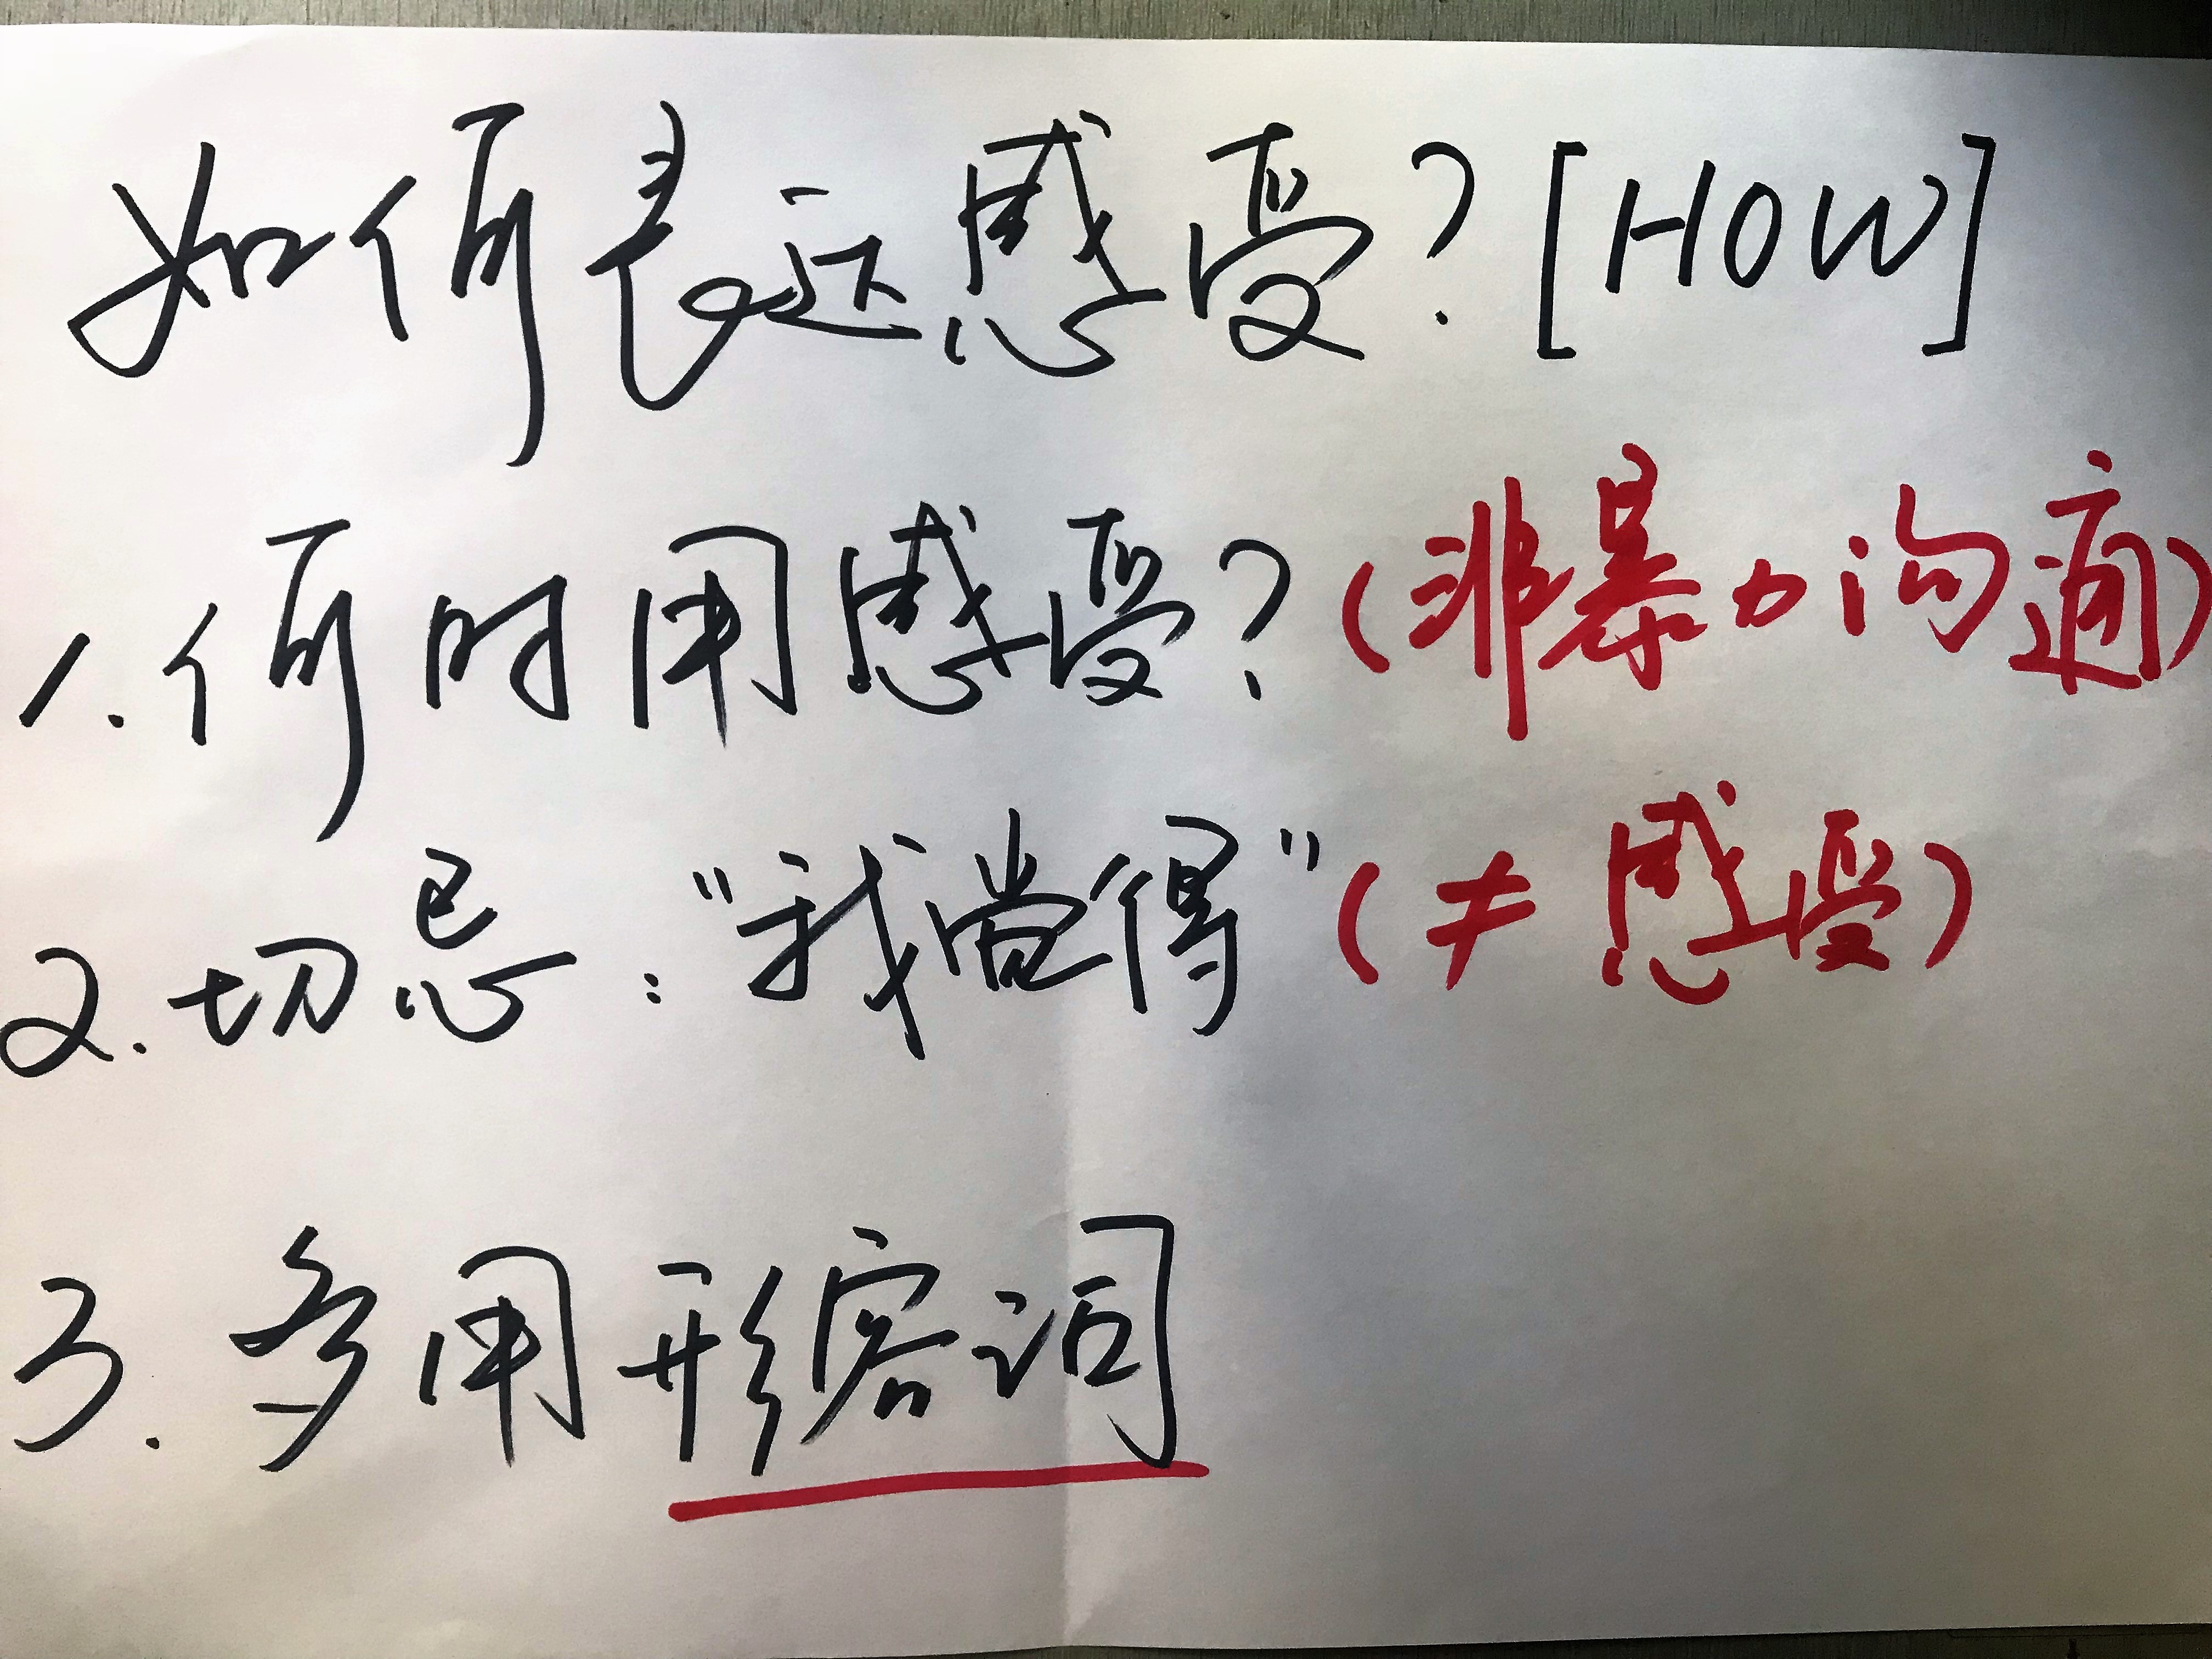 如何表达感受？[HOW]
1.何时用感受？(非暴力沟通)
2.切忌：“我觉得”(≠感受)
3.多用形容词